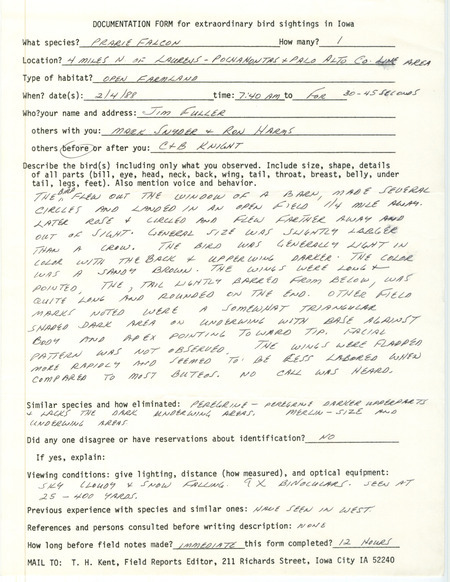 DOCUMENTATION FORM for extraordinary bird sightings in Iowa
What species? PRARIE FALCON How many? 1
Location? 4 MILES N OF LAURENS - POCAHONTAS + PALO ALTO CO. LINE AREA
Type of habitat? OPEN FARMLAND
When? date(s): 2/4/88 time: 7:40 AM to FOR 30-45 SECONDS
Who?your name and address: JIM FULLER
others with you: MARK SNYDER + RON HARMS
others before or after you: C+B KNIGHT
Describe the bird(s) including only what you observed. Include size, shape, details
of all parts (bill, eye, head, neck, back, wing, tail, throat, breast, belly, under
tail, legs, feet). Also mention voice and behavior.
THE BIRD FLEW OUT THE WINDOW OF A BARN, MADE SEVERAL
CIRCLES AND LANDED IN AN OPEN FIELD 1/4 MILE AWAY.
LATER ROSE + CIRCLED AND FLEW FARTHER AWAY AND
OUT OF SIGHT. GENERAL SIZE WAS SLIGHTLY LARGER
THAN A CROW. THE BIRD WAS GENERALLY LIGHT IN
COLOR WITH THE BACK + UPPERWING DARKER. THE COLOR
WAS A SANDY BROWN. THE WINGS WERE LONG +
POINTED, THE, TAIL LIGHTLY BARRED FROM BELOW, WAS
QUITE LONG AND ROUNDED ON THE END. OTHER FIELD
MARKS NOTED WERE A SOMEWHAT TRIANGULAR
SHAPED DARK AREA ON UNDERWING WITH BASE AGAINST
BODY AND APEX POINTING TOWARD TIP. FACIAL
PATTERN WAS NOT OBSERVED. THE WINGS WERE FLAPPED
MORE RAPIDLY AND SEEMED TO BE LESS LABORED WHEN
COMPARED TO MOST BUTEOS. NO CALL WAS HEARD.
Similar species and how eliminated: PEREGRINE - PEREGRINE DARKER UPPERPARTS
+ LACKS THE DARK UNDERWING AREAS. MERLIN - SIZE AND
UNDERWING AREAS
Did any one disagree or have reservations about identification? NO
If yes, explain:
Viewing conditions: give lighting, distance (how measured), and optical equipment:
SKY CLOUDY + SNOW FALLING. 9X BINOCULARS. SEEN AT
25 - 400 YARDS.
Previous experience with species and similar ones: HAVE SEEN IN WEST
References and persons consulted before writing description: NONE
How long before field notes made? IMMEDIATE this form completed? 12 HOURS
MAIL TO: T. H. Kent, Field Reports Editor, 211 Richards Street, Iowa City IA 52240